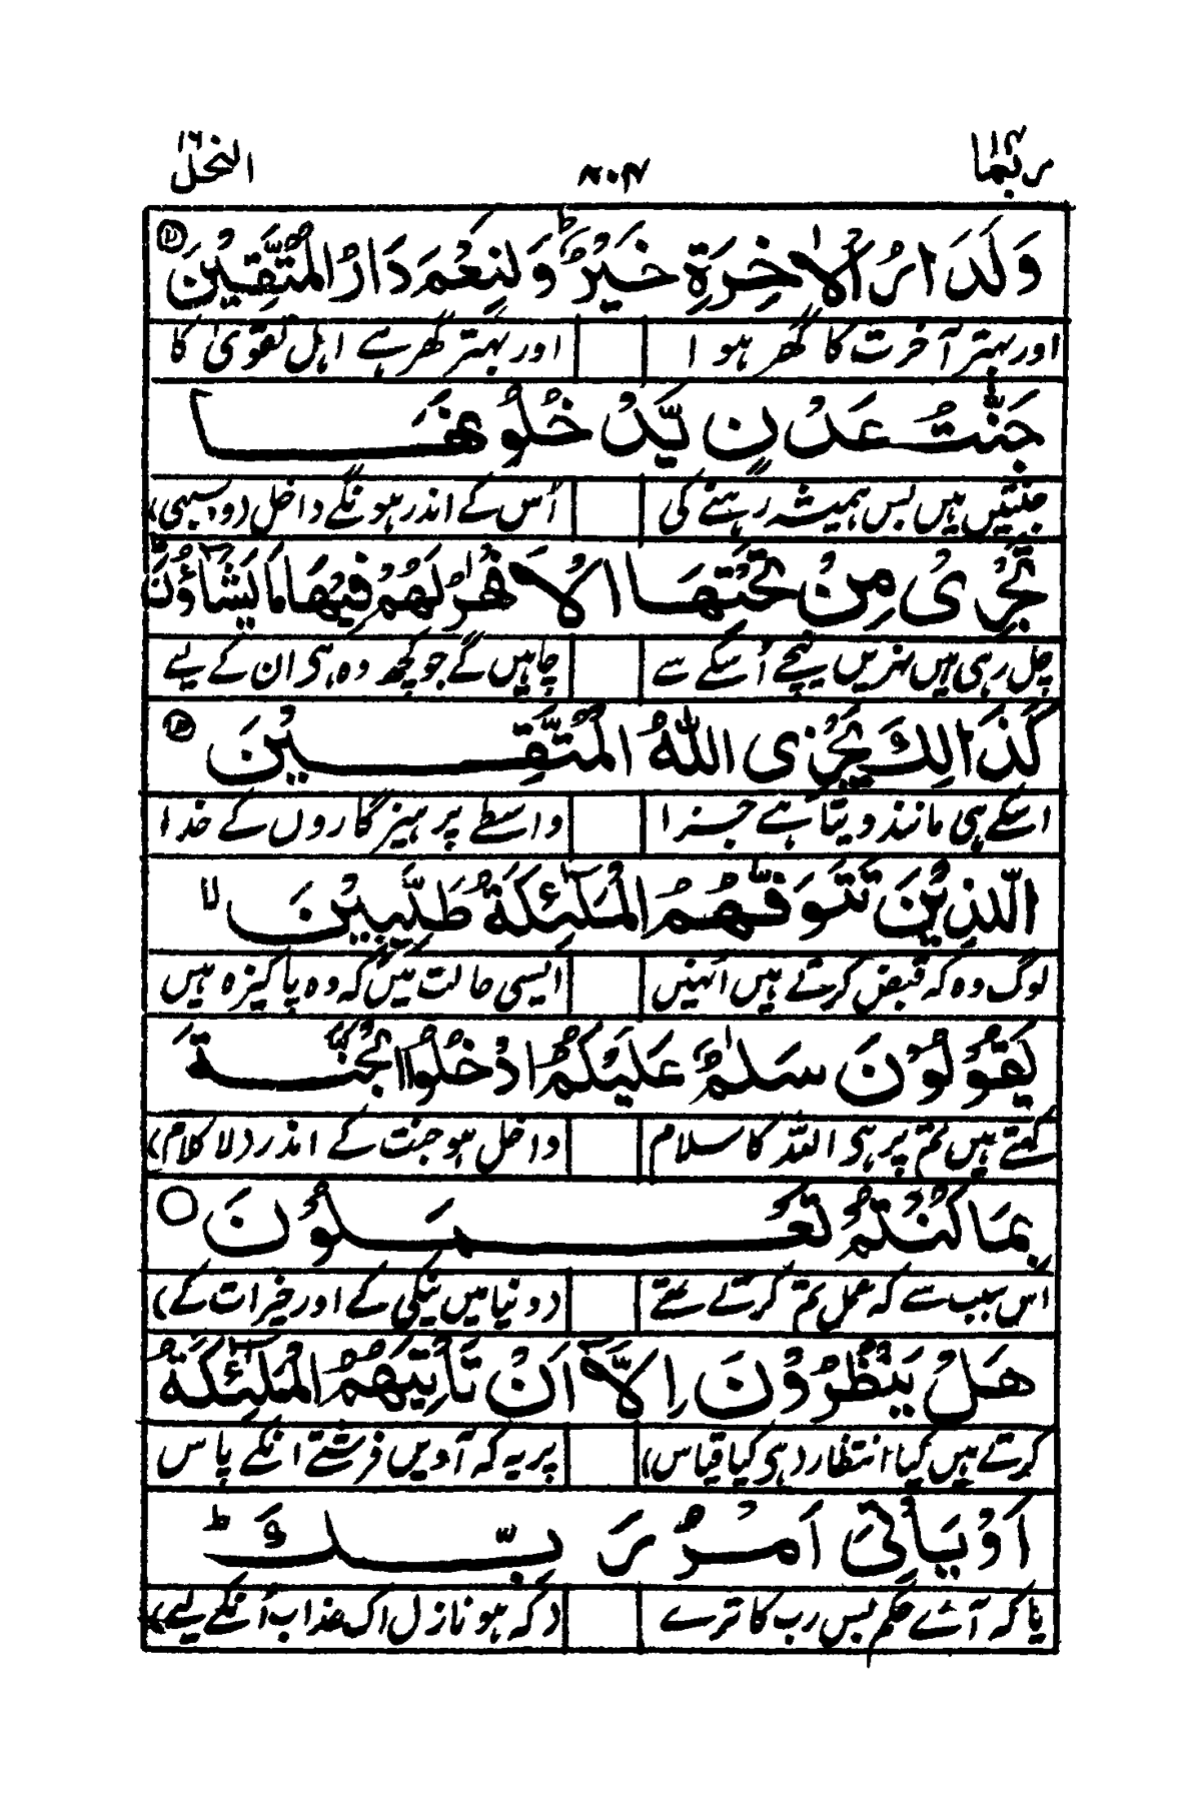 ربما ۱۴ ۸۰۴ النحل ۱۶
وَلَدَارُ الْاٰخِرَةِ خَيْرٌ ؕ وَلَنِعْمَ دَارُ الْمُتَّقِيْنَ
اور بہتر آخرت کا گھر ہوا اور بہتر گھر ہے اہل تقویٰ کا
جَنّٰتُ عَدْنٍ يَّدْخُلُوْنَهَا
جنتیں ہیں بس ہمیشہ رہنے کی اُس کے اندر ہونگے داخل
تَجْرِىْ مِنْ تَحْتِهَا الْاَنْهٰرُ لَهُمْ فِيْهَا مَا يَشَآؤُنَ ؕ
چل رہی ہیں نہریں نیچے اُسکے سے چاہیں گے جو کچھ وہ ہی ان کے لیے
كَذَالِكَ يَجْزِى اللّٰهُ الْمُتَّقِيْنَ
اسکے ہی مانند دیتا ہے جزا واسطے پرہیزگاروں کے خدا
الَّذِيْنَ تَتَوَفّٰهُمُ الْمَلٰٓئِكَةُ طَيِّبِيْنَ ۙ
لوگ وہ کہ قبض کرتے ہیں اُنہیں ایسی حالت میں کہ وہ پاکیزہ ہیں
يَقُوْلُوْنَ سَلٰمٌ عَلَيْكُمُ ادْخُلُوا الْجَنَّةَ
کہتے ہیں تم پر ہی اللہ کا سلام داخل ہو جنت کے اندر (لا کلام)
بِمَا كُنْتُمْ تَعْمَلُوْنَ ○
اس سبب سے کہ عمل تم کرتے تھے (دنیا میں نیکی کے اور خیرات کے)
هَلْ يَنْظُرُوْنَ اِلَّآ اَنْ تَاْتِيَهُمُ الْمَلٰٓئِكَةُ
کرتے ہیں کیا انتظار (ہی کیا قیاس) پر یہ کہ آویں فرشتے انکے پاس
اَوْ يَاْتِىَ اَمْرُ رَبِّكَ ؕ
یا کہ آئے حکم بس رب کا ترے (کہ ہو نازل اک عذاب اُنکے لیے)